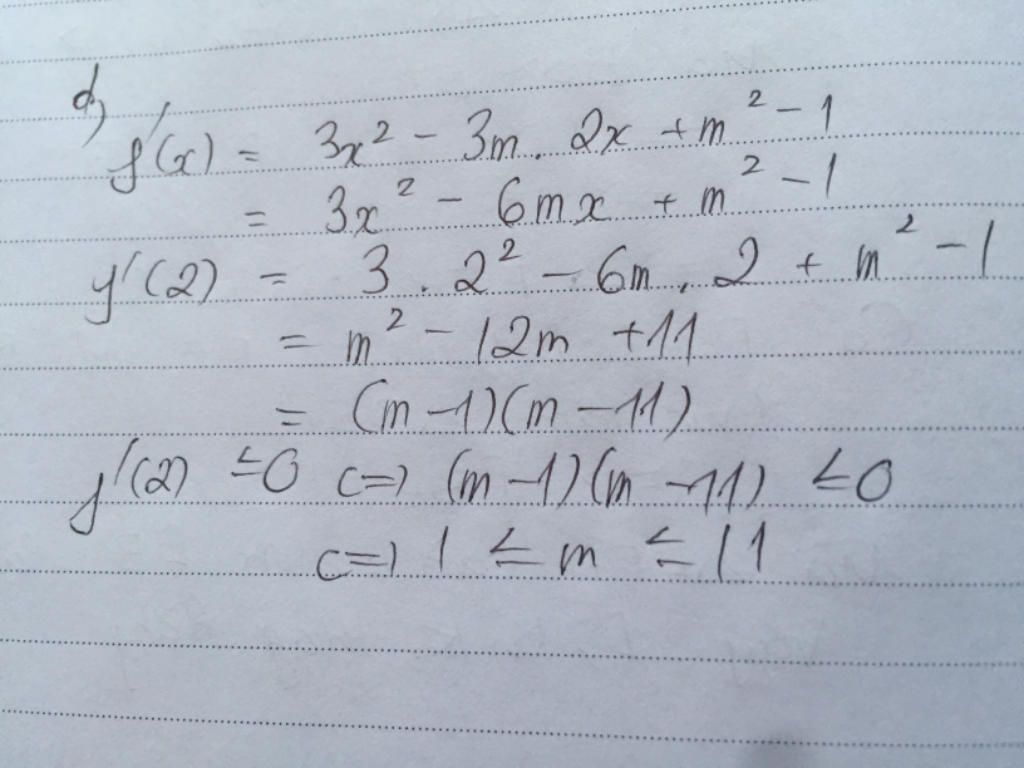 d)
f'(x) = 3x² - 3m. 2x + m² - 1
= 3x² - 6mx + m² - 1
y'(2) = 3 . 2² - 6m . 2 + m² - 1
= m² - 12m + 11
= (m - 1)(m - 11)
y'(2) ≤ 0 <=> (m - 1)(m - 11) ≤ 0
<=> 1 ≤ m ≤ 11